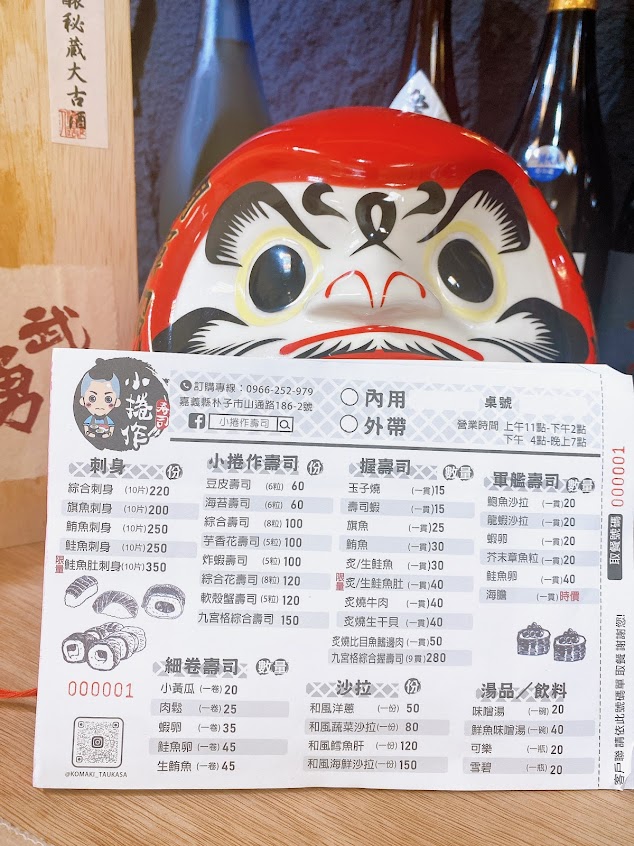 釀秘蔵大古酒
武
勇
小捲作
壽司
訂購專線：0966-252-979
嘉義縣朴子市山通路186-2號
小捲作壽司
內用
外帶
桌號
營業時間 上午11點-下午2點
下午 4點-晚上7點
刺身 份
綜合刺身 (10片) 220
旗魚刺身 (10片) 200
鮪魚刺身 (10片) 250
鮭魚刺身 (10片) 250
限量 鮭魚肚刺身 (10片) 350
小捲作壽司 份
豆皮壽司 (6粒) 60
海苔壽司 (6粒) 60
綜合壽司 (8粒) 100
芋香花壽司 (5粒) 100
炸蝦壽司 (5粒) 100
綜合花壽司 (8粒) 120
軟殼蟹壽司 (5粒) 120
九宮格綜合壽司 150
握壽司 數量
玉子燒 (一貫) 15
壽司蝦 (一貫) 15
旗魚 (一貫) 25
鮪魚 (一貫) 30
炙/生鮭魚 (一貫) 30
限量 炙/生鮭魚肚 (一貫) 40
炙燒牛肉 (一貫) 40
炙燒生干貝 (一貫) 40
炙燒比目魚鰭邊肉 (一貫) 50
九宮格綜合握壽司 (9貫) 280
軍艦壽司 數量
鮑魚沙拉 (一貫) 20
龍蝦沙拉 (一貫) 20
蝦卵 (一貫) 20
芥末章魚粒 (一貫) 20
鮭魚卵 (一貫) 40
海膽 (一貫) 時價
細卷壽司 數量
小黃瓜 (一卷) 20
肉鬆 (一卷) 25
蝦卵 (一卷) 35
鮭魚卵 (一卷) 45
生鮪魚 (一卷) 45
沙拉 份
和風洋蔥 (一份) 50
和風蔬菜沙拉 (一份) 80
和風鱈魚肝 (一份) 120
和風海鮮沙拉 (一份) 150
湯品／飲料
味噌湯 (一碗) 20
鮮魚味噌湯 (一碗) 40
可樂 (一瓶) 20
雪碧 (一瓶) 20
000001
@KOMAKI_TAUKASA
取餐號碼 000001
客戶聯 請依此號碼單取餐 謝謝您!